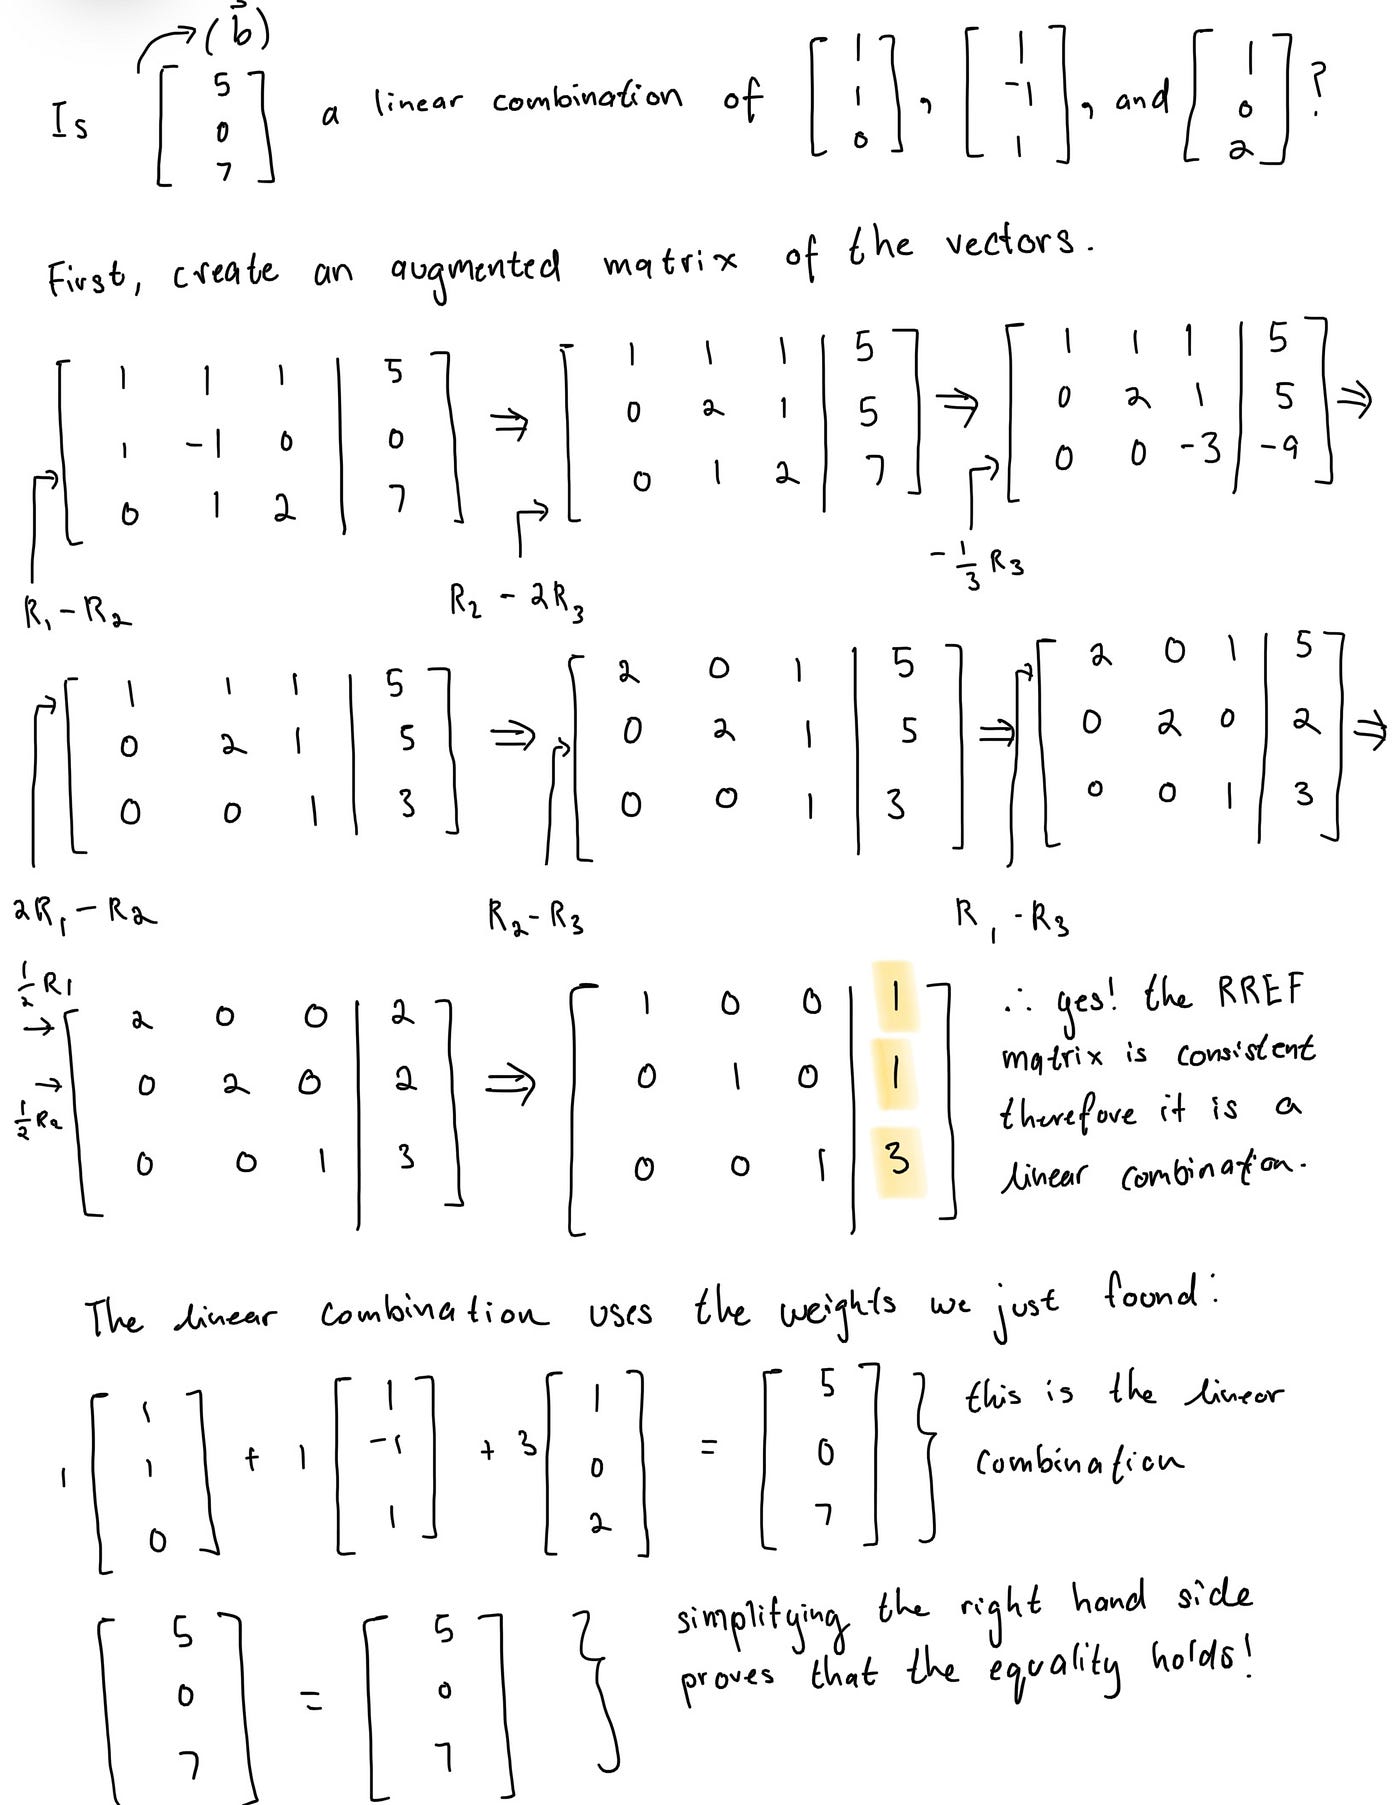 (b⃗)
Is [5 0 7] a linear combination of [1 1 0], [1 -1 1], and [1 0 2]?
First, create an augmented matrix of the vectors.
[1 1 1 | 5] ⇒ [1 1 1 | 5] ⇒ [1 1 1 | 5] ⇒
[1 -1 0 | 0] [0 2 1 | 5] [0 2 1 | 5]
[0 1 2 | 7] [0 1 2 | 7] [0 0 -3 | -9]
R₁ - R₂ R₂ - 2R₃ -1/3 R₃
[1 1 1 | 5] ⇒ [2 0 1 | 5] ⇒ [2 0 1 | 5] ⇒
[0 2 1 | 5] [0 2 1 | 5] [0 2 0 | 2]
[0 0 1 | 3] [0 0 1 | 3] [0 0 1 | 3]
2R₁ - R₂ R₂ - R₃ R₁ - R₃
1/2 R1
→ [2 0 0 | 2] ⇒ [1 0 0 | 1] ∴ yes! the RREF
matrix is consistent
→ [0 2 0 | 2] [0 1 0 | 1]
1/2 R₂ therefore it is a
[0 0 1 | 3] [0 0 1 | 3] linear combination.
The linear combination uses the weights we just found:
1 [1 1 0] + 1 [1 -1 1] + 3 [1 0 2] = [5 0 7] } this is the linear
combination
[5 0 7] = [5 0 7] } simplifying the right hand side
proves that the equality holds!